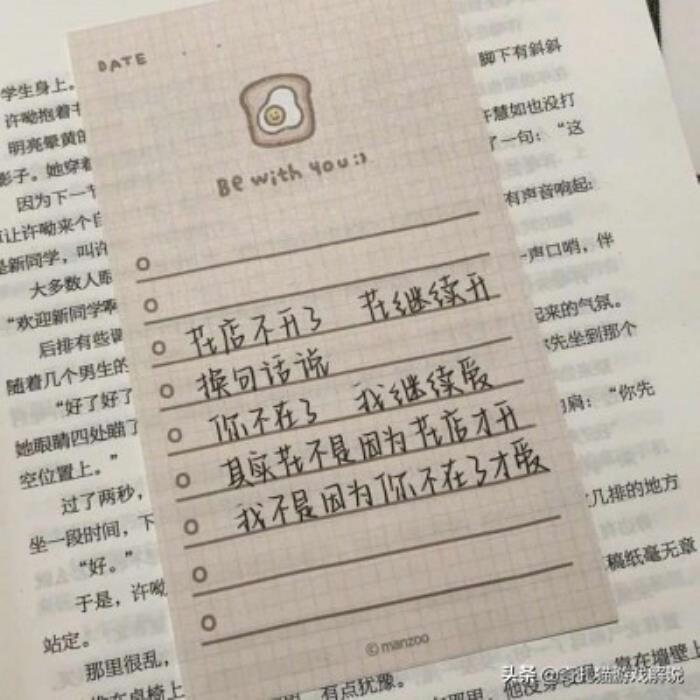 DATE
Be with you:)
花店不开了 花继续开
换句话说
你不在了 我继续爱
其实花不是因为花店才开
我不是因为你不在了才爱
©manzoo
学生身上。
许呦抱着
明亮晕黄的
影子。她穿着
因为下一节
让许呦来个自
是新同学，叫许
大多数人眼
“欢迎新同学啊
后排有些调
随着几个男生的
“好了好了
她眼睛四处瞄了
空位置上。”
过了两秒，
坐一段时间，下
“好。”
于是，许呦
站定。
那里很乱，
有点犹豫。
脚下有斜斜
许慧如也没打
了一句：“这
有声音响起：
一声口哨，伴
起来的气氛。
你先坐到那个
肩：“你先
几排的地方
稿纸毫无章
靠在墙壁上